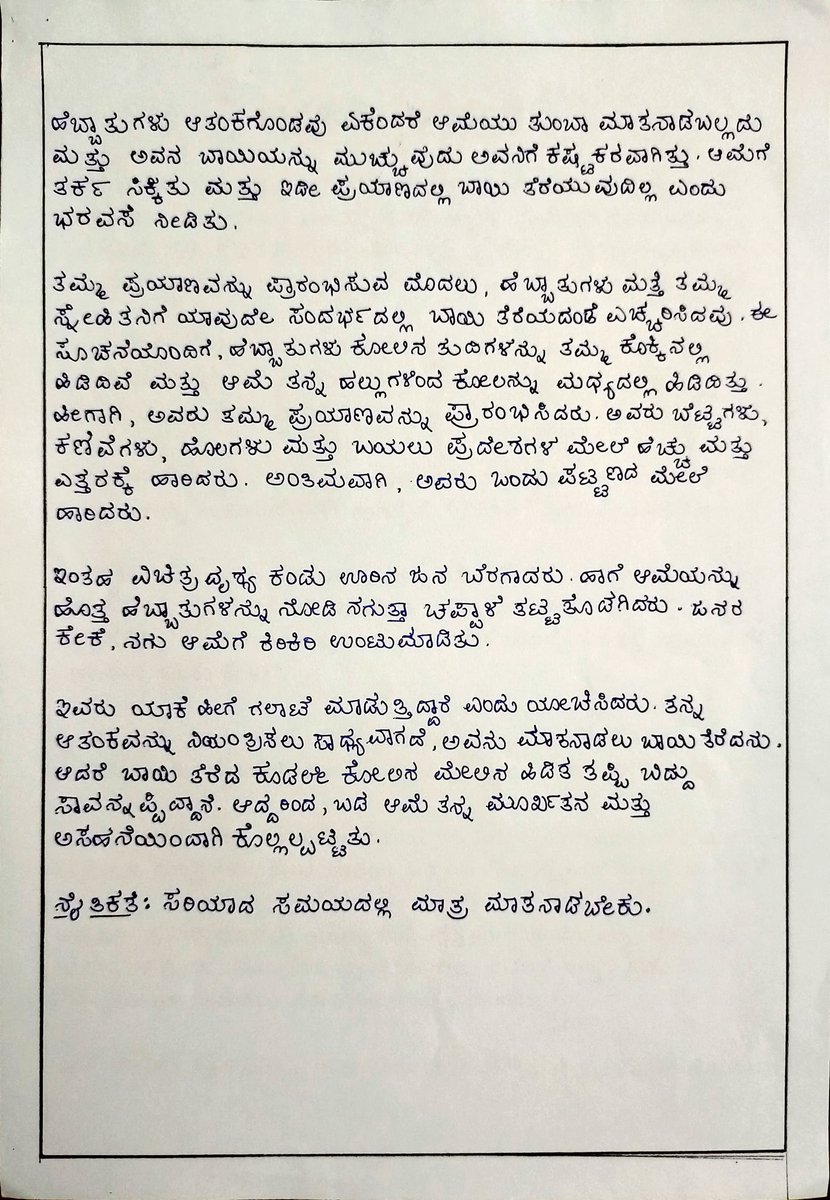 ಹೆಬ್ಬಾತುಗಳು ಆತಂಕಗೊಂಡವು ಏಕೆಂದರೆ ಆಮೆಯು ತುಂಬಾ ಮಾತನಾಡಬಲ್ಲದು
ಮತ್ತು ಅವನ ಬಾಯಿಯನ್ನು ಮುಚ್ಚುವುದು ಅವನಿಗೆ ಕಷ್ಟಕರವಾಗಿತ್ತು. ಆಮೆಗೆ
ತರ್ಕ ಸಿಕ್ಕಿತು ಮತ್ತು ಇಡೀ ಪ್ರಯಾಣದಲ್ಲಿ ಬಾಯಿ ತೆರೆಯುವುದಿಲ್ಲ ಎಂದು
ಭರವಸೆ ನೀಡಿತು.
ತಮ್ಮ ಪ್ರಯಾಣವನ್ನು ಪ್ರಾರಂಭಿಸುವ ಮೊದಲು, ಹೆಬ್ಬಾತುಗಳು ಮತ್ತೆ ತಮ್ಮ
ಸ್ನೇಹಿತನಿಗೆ ಯಾವುದೇ ಸಂದರ್ಭದಲ್ಲಿ ಬಾಯಿ ತೆರೆಯದಂತೆ ಎಚ್ಚರಿಸಿದವು. ಈ
ಸೂಚನೆಯೊಂದಿಗೆ, ಹೆಬ್ಬಾತುಗಳು ಕೋಲಿನ ತುದಿಗಳನ್ನು ತಮ್ಮ ಕೊಕ್ಕಿನಲ್ಲಿ
ಹಿಡಿದಿವೆ ಮತ್ತು ಆಮೆ ತನ್ನ ಹಲ್ಲುಗಳಿಂದ ಕೋಲನ್ನು ಮಧ್ಯದಲ್ಲಿ ಹಿಡಿದಿತ್ತು.
ಹೀಗಾಗಿ, ಅವರು ತಮ್ಮ ಪ್ರಯಾಣವನ್ನು ಪ್ರಾರಂಭಿಸಿದರು. ಅವರು ಬೆಟ್ಟಗಳು,
ಕಣಿವೆಗಳು, ಹೊಲಗಳು ಮತ್ತು ಬಯಲು ಪ್ರದೇಶಗಳ ಮೇಲೆ ಹೆಚ್ಚು ಮತ್ತು
ಎತ್ತರಕ್ಕೆ ಹಾರಿದರು. ಅಂತಿಮವಾಗಿ, ಅವರು ಒಂದು ಪಟ್ಟಣದ ಮೇಲೆ
ಹಾರಿದರು.
ಇಂತಹ ವಿಚಿತ್ರ ದೃಶ್ಯ ಕಂಡು ಊರಿನ ಜನ ಬೆರಗಾದರು. ಹಾಗೆ ಆಮೆಯನ್ನು
ಹೊತ್ತ ಹೆಬ್ಬಾತುಗಳನ್ನು ನೋಡಿ ನಗುತ್ತಾ ಚಪ್ಪಾಳೆ ತಟ್ಟತೊಡಗಿದರು. ಜನರ
ಕೇಕೆ, ನಗು ಆಮೆಗೆ ಕಿರಿಕಿರಿ ಉಂಟುಮಾಡಿತು.
ಇವರು ಯಾಕೆ ಹೀಗೆ ಗಲಾಟೆ ಮಾಡುತ್ತಿದ್ದಾರೆ ಎಂದು ಯೋಚಿಸಿದರು. ತನ್ನ
ಆತಂಕವನ್ನು ನಿಯಂತ್ರಿಸಲು ಸಾಧ್ಯವಾಗದೆ, ಅವನು ಮಾತನಾಡಲು ಬಾಯಿ ತೆರೆದನು.
ಆದರೆ ಬಾಯಿ ತೆರೆದ ಕೂಡಲೇ ಕೋಲಿನ ಮೇಲಿನ ಹಿಡಿತ ತಪ್ಪಿ ಬಿದ್ದು
ಸಾವನ್ನಪ್ಪಿದ್ದಾನೆ. ಆದ್ದರಿಂದ, ಬಡ ಆಮೆ ತನ್ನ ಮೂರ್ಖತನ ಮತ್ತು
ಅಸಹನೆಯಿಂದಾಗಿ ಕೊಲ್ಲಲ್ಪಟ್ಟಿತು.
ನೈತಿಕತೆ: ಸರಿಯಾದ ಸಮಯದಲ್ಲಿ ಮಾತ್ರ ಮಾತನಾಡಬೇಕು.